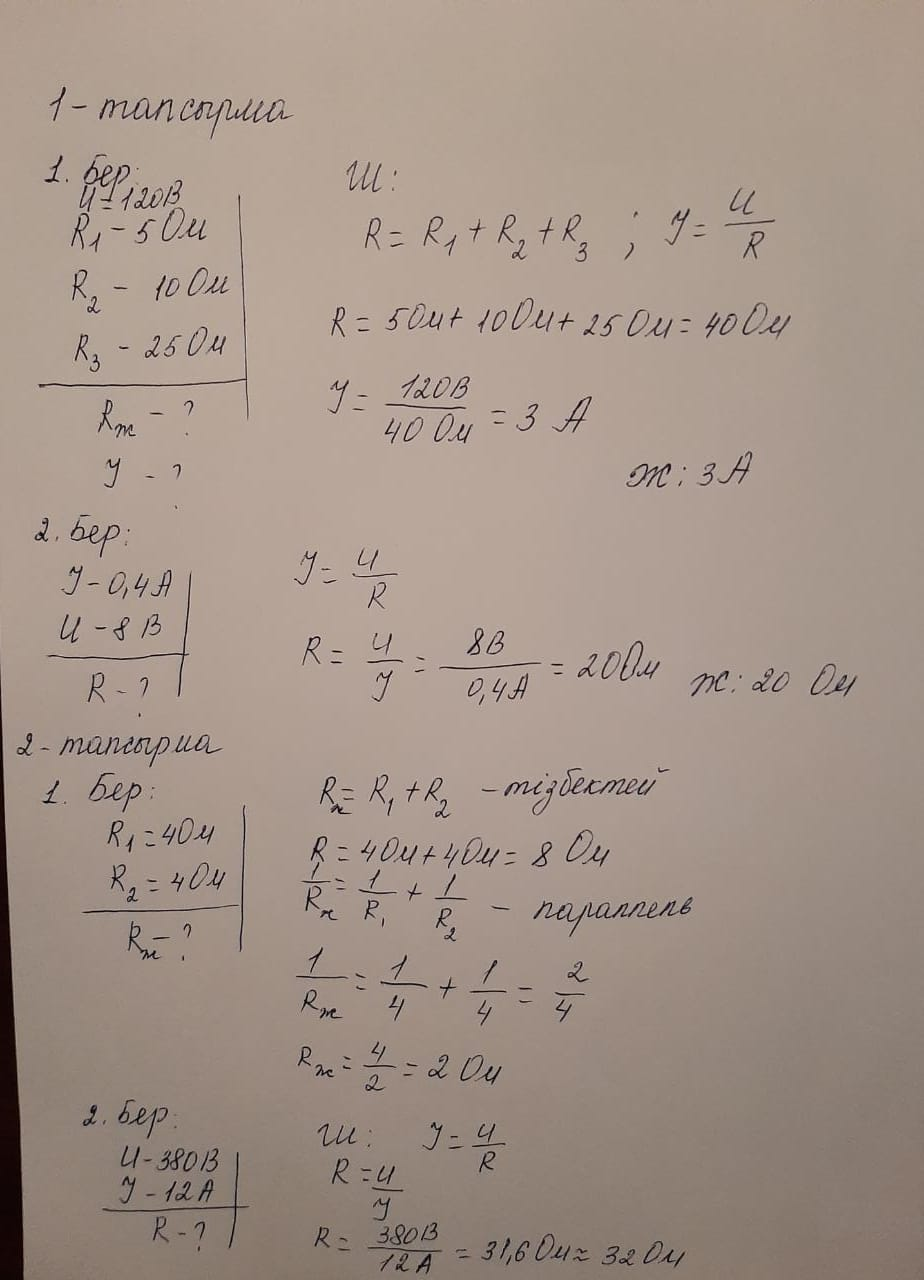 1 - тапсырма
1. Бер:
U = 120В
R1 - 5 Ом
R2 - 10 Ом
R3 - 25 Ом
Rж - ?
У - ?
Ш:
R = R1 + R2 + R3 ; У = U/R
R = 5Ом + 10Ом + 25 Ом = 40 Ом
У = 120В/40 Ом = 3 А
Ж: 3А
2. Бер:
У - 0,4 А
U - 8 В
R - ?
У = U/R
R = U/У = 8В/0,4А = 20 Ом
Ж: 20 Ом
2 - тапсырма
1. Бер:
R1 = 4Ом
R2 = 4Ом
Rж - ?
Rж = R1 + R2 - тізбектей
R = 4Ом + 4Ом = 8 Ом
1/Rж = 1/R1 + 1/R2 - параллель
1/Rж = 1/4 + 1/4 = 2/4
Rж = 4/2 = 2 Ом
2. Бер:
U - 380В
У - 12 А
R - ?
Ш: У = U/R
R = U/У
R = 380В/12А = 31,6 Ом ≈ 32 Ом